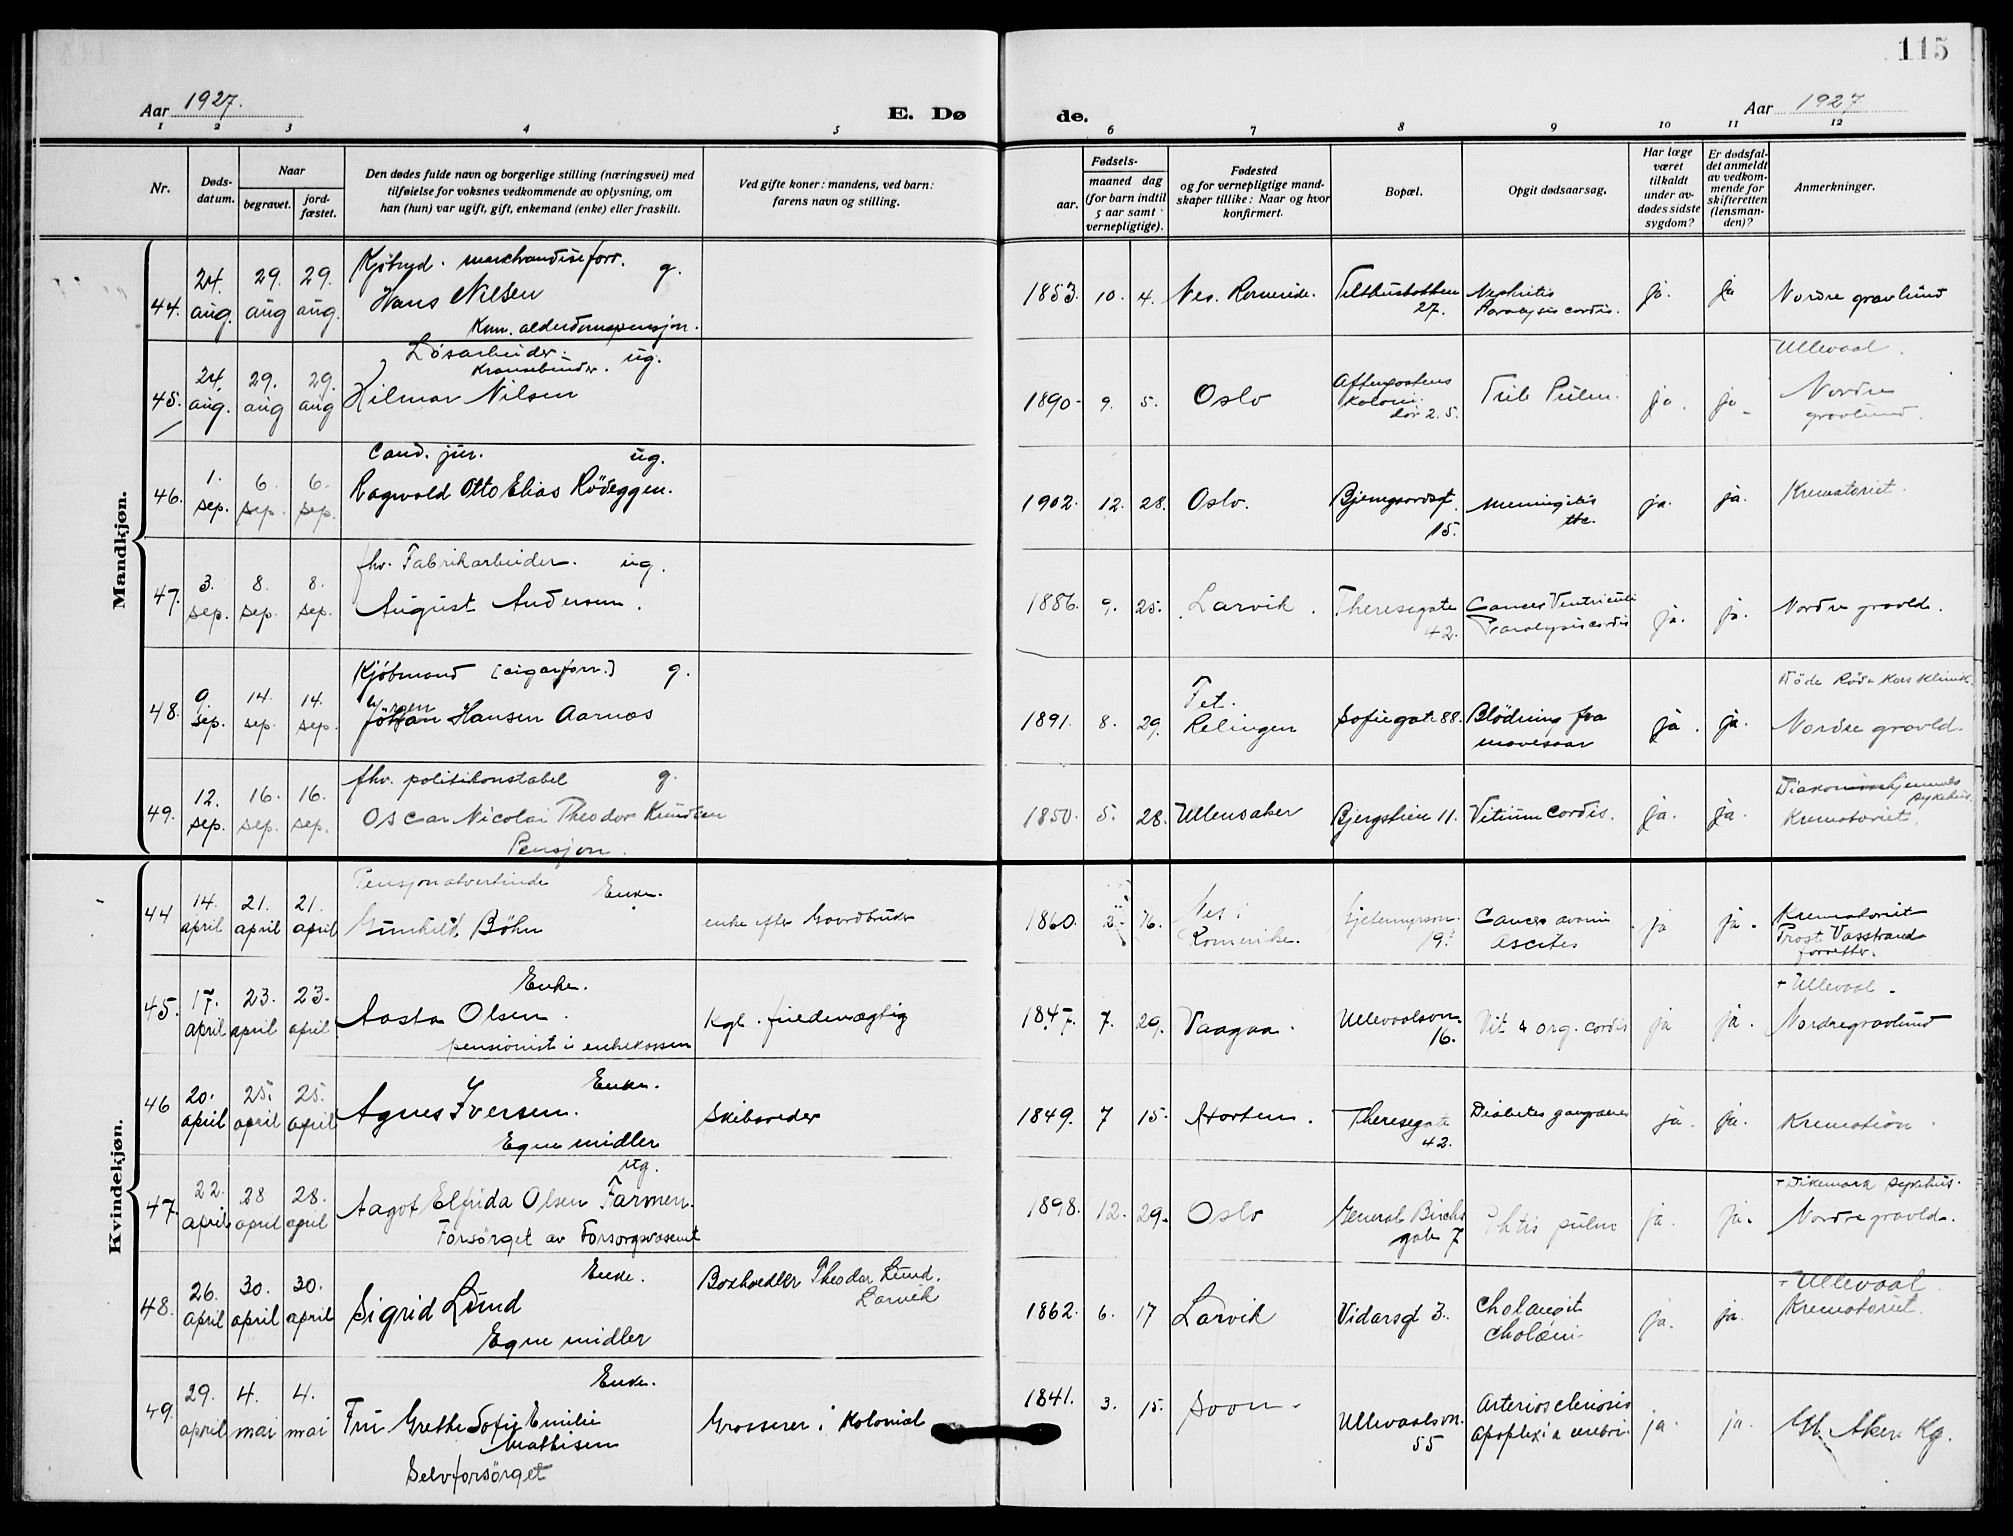 115
Aar 1927.
E. Dø
de.
Aar 1927
1 2 3 4 5 6 7 8 9 10 11 12
Nr.
Døds-
datum.
Naar
begravet.
jord-
fæstet.
Den dødes fulde navn og borgerlige stilling (næringsvei) med
tilføielse for voksnes vedkommende av oplysning, om
han (hun) var ugift, gift, enkemand (enke) eller fraskilt.
Ved gifte koner: mandens, ved barn:
farens navn og stilling.
Fødsels-
aar.
maaned dag
(for barn indtil
5 aar samt
vernepligtige).
Fødested
og for vernepligtige mand-
skaper tillike: Naar og hvor
konfirmert.
Bopæl.
Opgit dødsaarsag.
Har læge
været
tilkaldt
under av-
dødes sidste
sygdom?
Er dødsfal-
det anmeldt
av vedkom-
mende for
skifteretten
(lensman-
den)?
Anmerkninger.
Mandkjøn.
44. 24. aug. 29. aug 29. aug.
g.
Hans Nilsen
Kom. alderdomspensjon.
1853. 10. 4. Nes. Romerike.
27.
Nephritis
Paralysis cordis.
ja. ja Nordre gravlund
45. 24. aug. 29. aug 29. aug
Løsarbeider.
Kransebinder. ug.
Hilmar Nilsen
1890. 9. 5. Oslo
Aftenpostens
Koloni.
ja. ja.
Ullevaal.
Nordre
gravlund.
46. 1. sep. 6. sep. 6. sep.
Cand. jur. ug.
Ragnvald Otto Elias Rödeggen.
1902. 12. 28. Oslo.
15.
Meningitis
tbc.
ja. ja. Krematoriet.
47. 3. sep. 8. sep. 8. sep.
fhv. Fabrikarbeider. ug.
August Andersen.
1886. 9. 25. Larvik.
Theresegate
42.
Cancer Ventriculi
Paralysis cordis
ja. ja. Nordre gravld.
48. 9. sep. 14. sep. 14. sep.
Kjöbmand [cigarforr.] g.
Jörgen
Johan Hansen Aarnæs
1891. 8. 29.
Fet.
Relingen
Sofiegate 88.
Blödning fra
mavesaar
ja. ja.
Död Röde Kors Klinik.
Nordre gravld.
49. 12. sep. 16. sep. 16. sep.
fhv. politikonstabel g.
Oscar Nicolai Theodor Knudsen
Pensjon.
1850. 5. 28. Ullensaker
Bjergstien 11. Vitium Cordis.
ja. ja.
Diakonissehjemmets
sykehus.
Krematoriet.
Kvindekjøn.
44 14. april 21. april 21. april
Pensjonatvertinde
Enke.
Gunhild Böhn
enke efter Gaardbruker
1860. 2. 16.
Nes i
Romerike.
19.
Cancer
Ascites
ja ja.
Krematoriet
Prost Vasstrand
forretter.
45. 17. april 23. april 23. april
Enke.
Aasta Olsen.
pensionist i enkekassen
Kgl. fuldmægtig
1847. 7. 29. Vaagaa.
Ullevaalsvn.
16.
Vit & org. cordis
ja ja.
+ Ullevaal.
Nordre gravlund
46 20. april 25. april 25. april
Enke.
Agnes Iversen.
Egne midler
Skibsreder
1849. 7 15. Horten.
Theresegate
42.
Diabetes gangraenes
ja. ja. Kremation.
47. 22. april 28 april 28. april
ug.
Aagot Elfrida Olsen Farmen.
Forsörget av Forsorgsvæsenet
1898. 12. 29. Oslo
General Birchs
gate 7
Phtis pulm
ja. ja.
+ Dikemark sykehus.
Nordre gravld.
48. 26. april 30. april 30. april
Enke.
Sigrid Lund
Egne midler
Boxhandler Theodor Lund.
Larvik
1862. 6. 17 Larvik Vidarsgt 3.
Cholangit
Cholæmi
ja. ja.
+ Ullevaal
Krematoriet.
49. 29. april 4. mai 4. mai
Enke.
Fru Grethe Sofie Emilie
Mathisen
Selvforsörget
Grosserer i Kolonial
1841. 3. 15. Soon.
Ullevaalsvn.
55
Arteriosclerosis
Apoplexia cerebri.
ja. ja Gl. Aker Kg.